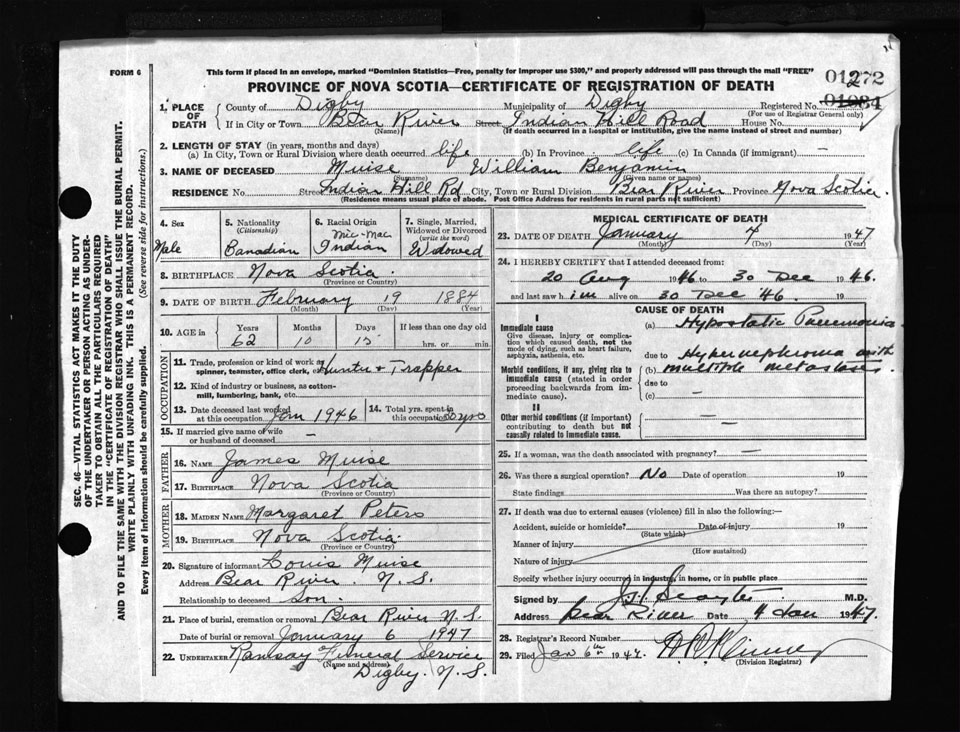 FORM 6
This form if placed in an envelope, marked "Dominion Statistics—Free, penalty for improper use $300," and properly addressed will pass through the mail "FREE"
01272
PROVINCE OF NOVA SCOTIA—CERTIFICATE OF REGISTRATION OF DEATH
01084
1. PLACE OF DEATH
County of Digby Municipality of Digby Registered No.
(For use of Registrar General only)
If in City or Town Bear River Street Indian Hill Road House No.
(Name) (If death occurred in a hospital or institution, give the name instead of street and number)
2. LENGTH OF STAY (in years, months and days)
(a) In City, Town or Rural Division where death occurred life (b) In Province life (c) In Canada (if immigrant) —
3. NAME OF DECEASED Muise William Benjamin
(Surname) (Given name or names)
RESIDENCE No. Street Indian Hill Rd City, Town or Rural Division Bear River Province Nova Scotia
(Residence means usual place of abode. Post Office Address for residents in rural parts not sufficient)
4. Sex
Male
5. Nationality
(Citizenship)
Canadian
6. Racial Origin
Mic-Mac
Indian
7. Single, Married, Widowed or Divorced
(write the word)
Widowed
8. BIRTHPLACE Nova Scotia
(Province or Country)
9. DATE OF BIRTH February 19 1884
(Month) (Day) (Year)
10. AGE in
Years Months Days If less than one day old
62 10 15 hrs. or min.
OCCUPATION
11. Trade, profession or kind of work as
spinner, teamster, office clerk, etc. Hunter & Trapper
12. Kind of industry or business, as cotton-
mill, lumbering, bank, etc.
13. Date deceased last worked
at this occupation Jan 1946
14. Total yrs. spent in
this occupation 50 yrs
15. If married give name of wife
or husband of deceased —
FATHER
16. NAME James Muise
17. BIRTHPLACE Nova Scotia
(Province or Country)
MOTHER
18. MAIDEN NAME Margaret Peters
19. BIRTHPLACE Nova Scotia
(Province or Country)
20. Signature of informant Louis Muise
Address Bear River. N.S.
Relationship to deceased Son.
21. Place of burial, cremation or removal Bear River N.S.
Date of burial or removal January 6 1947
22. UNDERTAKER Ramsay Funeral Service
(Name and address)
Digby. N.S.
MEDICAL CERTIFICATE OF DEATH
23. DATE OF DEATH January 4 1947
(Month) (Day) (Year)
24. I HEREBY CERTIFY that I attended deceased from:
20 Aug 1946 to 30 Dec 1946.
and last saw him alive on 30 Dec '46 19
CAUSE OF DEATH
I
Immediate cause
Give disease, injury or complica-
tion which caused death, not the
mode of dying, such as heart failure,
asphyxia, asthenia, etc.
(a) Hypostatic Pneumonia
due to Hypernephroma with
Morbid conditions, if any, giving rise to
immediate cause (stated in order
proceeding backwards from im-
mediate cause).
(b) multiple metastases
due to —
(c) —
II
Other morbid conditions (if important)
contributing to death but not
causally related to immediate cause.
—
25. If a woman, was the death associated with pregnancy? —
26. Was there a surgical operation? No Date of operation 19
State findings Was there an autopsy?
27. If death was due to external causes (violence) fill in also the following:—
Accident, suicide or homicide? Date of injury 19
(State which)
Manner of injury
(How sustained)
Nature of injury
Specify whether injury occurred in industry, in home, or in public place
Signed by M.D.
Address Bear River Date 4 Jan 1947
28. Registrar's Record Number
29. Filed Jan 6th 1947
(Division Registrar)
SEC. 46—VITAL STATISTICS ACT MAKES IT THE DUTY
OF THE UNDERTAKER OR PERSON ACTING AS UNDER-
TAKER TO OBTAIN ALL THE PARTICULARS REQUIRED
IN THE "CERTIFICATE OF REGISTRATION OF DEATH"
AND TO FILE THE SAME WITH THE DIVISION REGISTRAR WHO SHALL ISSUE THE BURIAL PERMIT.
WRITE PLAINLY WITH UNFADING INK. THIS IS A PERMANENT RECORD.
Every item of information should be carefully supplied. (See reverse side for instructions.)